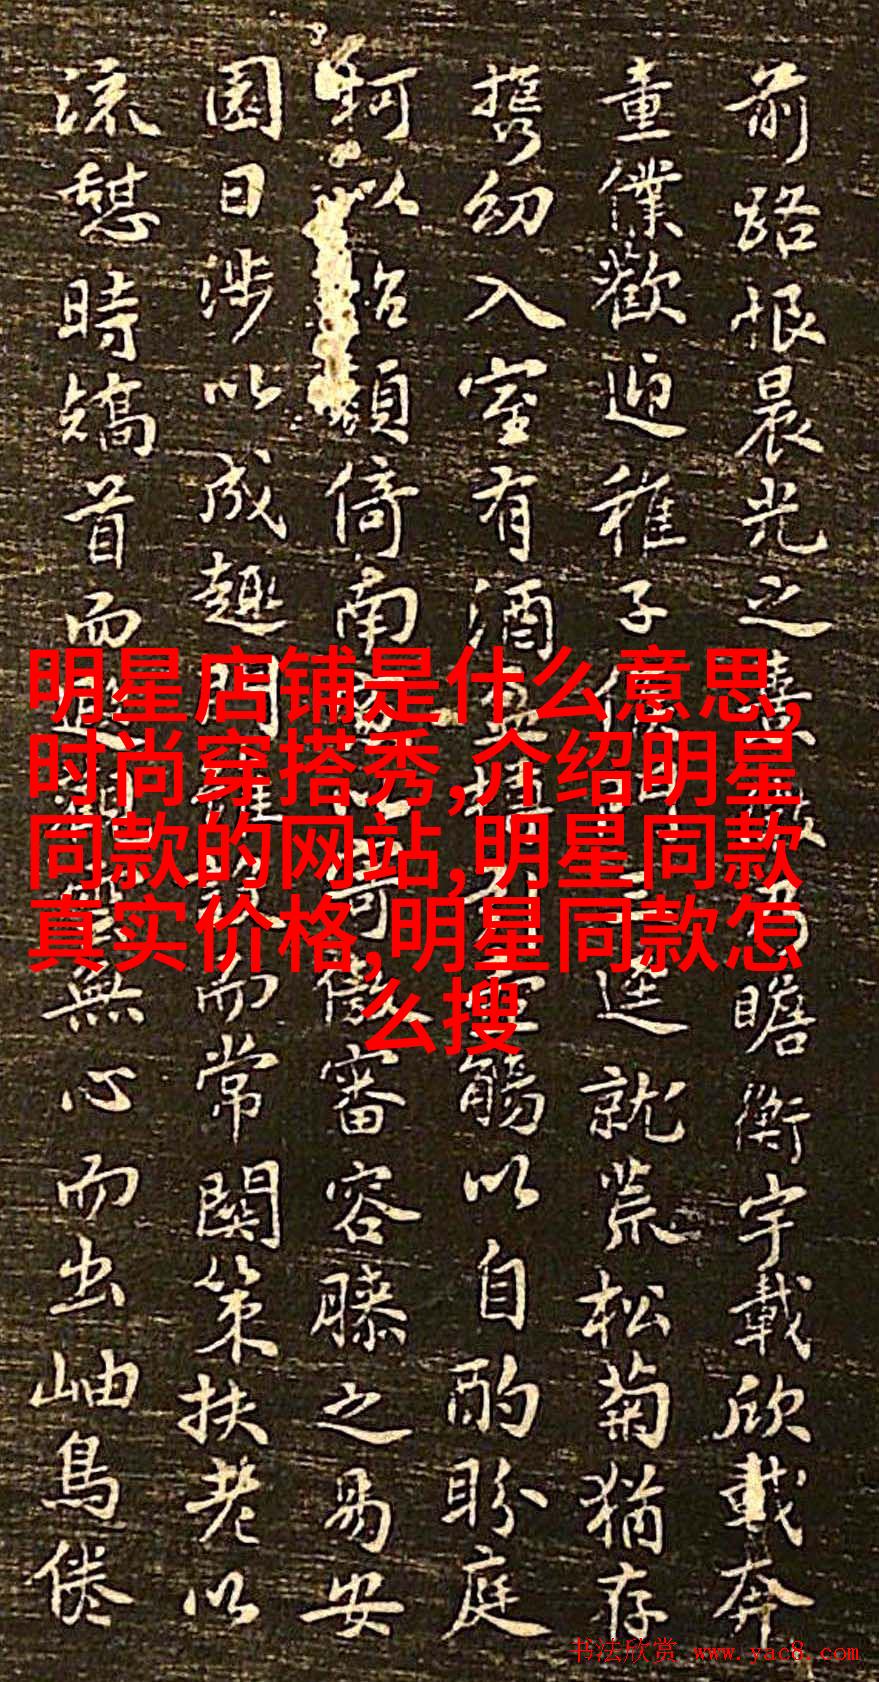 前路恨晨光之熹微乃瞻衡宇載欣載奔
童僕歡迎稚子候門三逕就荒松菊猶存
携幼入室有酒盈樽引壺觴以自酌盼庭
柯以怡顏倚南窗以寄傲審容膝之易安
園日涉以成趣門雖設而常關策扶老以
流憩時矯首而遐觀雲無心而出岫鳥倦
明星店铺是什么意思,
时尚穿搭秀,介绍明星
同款的网站,明星同款
真实价格,明星同款怎
么搜
书法欣赏 www.yac8.com